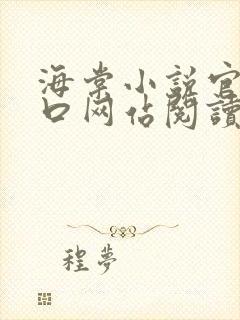 海棠小説官
口网佔閱讀
程夢